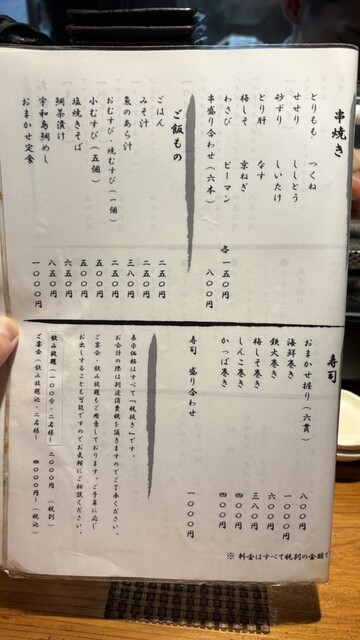 串焼き
とりもも つくね
せせり ししとう
砂ずり しいたけ
とり肝 なす
梅しそ 京ねぎ
わさび ピーマン
各一五〇円
串盛り合わせ(六本) 八〇〇円
ご飯もの
ごはん 二五〇円
みそ汁 二五〇円
魚のあら汁 三八〇円
おむすび・焼むすび(一個) 二五〇円
小むすび(五個) 五〇〇円
塩焼きそば 六五〇円
鯛茶漬け 八五〇円
宇和島鯛めし
おまかせ定食 一〇〇〇円
寿司
おまかせ握り(六貫) 八〇〇円
海鮮巻き 一〇〇〇円
鉄火巻き 六〇〇円
梅しそ巻き 三八〇円
しんこ巻き 四〇〇円
かっぱ巻き 四〇〇円
寿司 盛り合わせ 一〇〇〇円
※ 料金はすべて税別の金額で
表示価格はすべて「税抜き」です。
お会計の際は別途消費税を頂きますのでご了承ください。
ご宴会・飲み放題もご用意しております。ご予算に応じ
お出しすることも可能ですのでお気軽にご相談ください。
飲み放題(一〇〇分・二名様〜 二〇〇〇円 (税別)
ご宴会(飲み放題込・二名様〜 四〇〇〇円〜(税込)